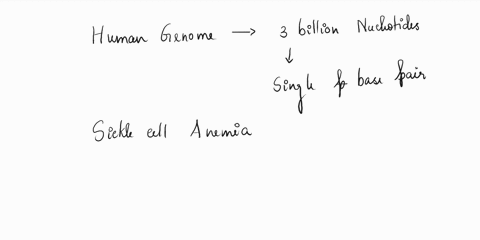 Human Genome → 3 billion Nucleotides
↓
Single base pair
Sickle cell Anemia